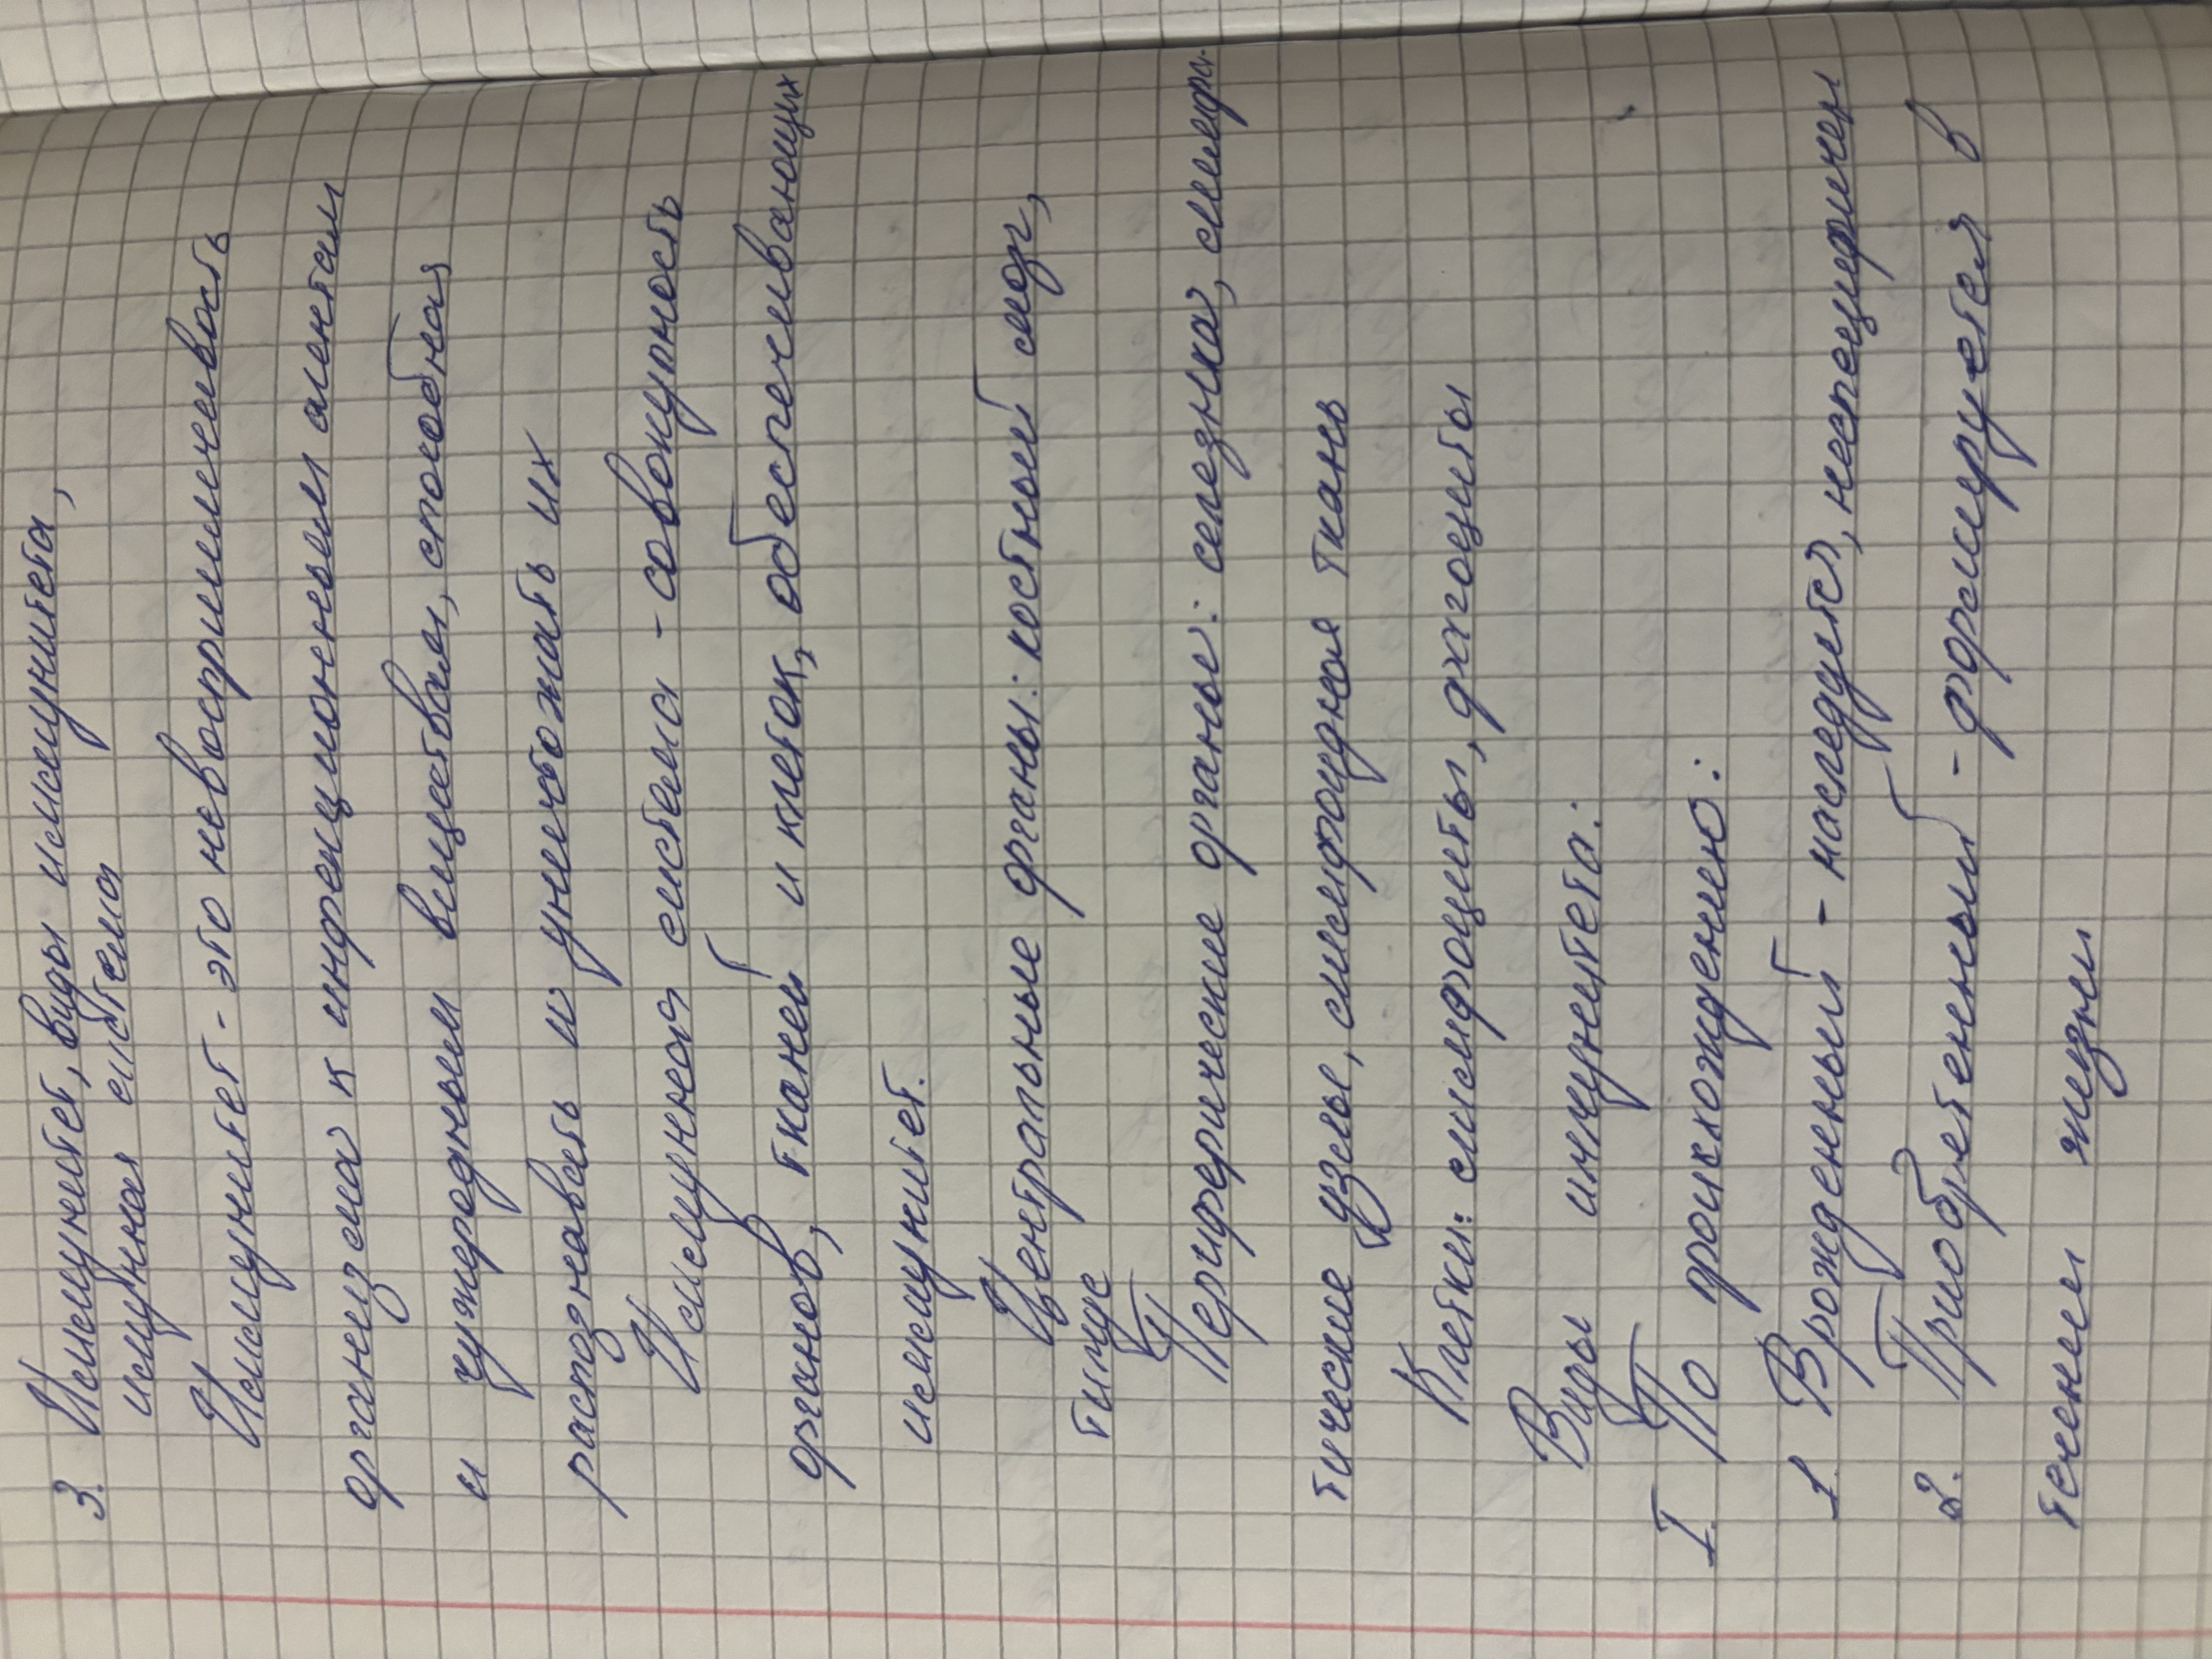 3. Иммунитет, виды иммунитета,
имунная система
Иммунитет - это невосприимчивость
организма к инфекционным агентам
и чужеродным веществам, способная
распознавать и уничтожать их
Иммунная система - совокупность
органов, тканей и клеток, обеспечивающих
иммунитет.
Центральные органы: костный мозг,
тимус
Периферические органы: селезнка, лимфа-
тические узлы, лимфоидная ткань
Клетки: лимфоциты,
Виды иммунитета:
I. По происхождению:
1. Врожденный - наследуется, неспецифичен
2. Приобретенный - формируется в
течении жизни